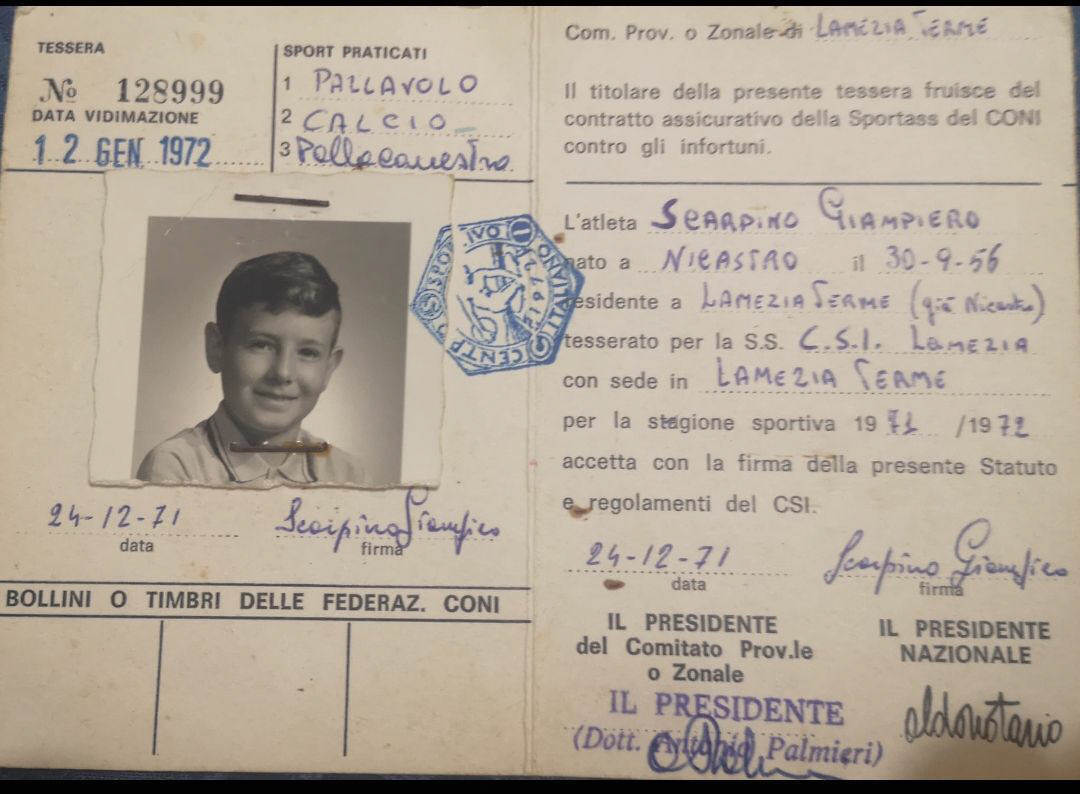 TESSERA
No 128999
DATA VIDIMAZIONE
12 GEN 1972
SPORT PRATICATI
1 PALLAVOLO
2 CALCIO
3 Pallacanestro
CENTRO SPORTIVO ITALIANO
24-12-71
data
Scarpino Giampiero
firma
BOLLINI O TIMBRI DELLE FEDERAZ. CONI
Com. Prov. o Zonale di LAMEZIA TERME
Il titolare della presente tessera fruisce del
contratto assicurativo della Sportass del CONI
contro gli infortuni.
L'atleta SCARPINO GIAMPIERO
nato a NICASTRO il 30-9-56
residente a LAMEZIA TERME (già Nicastro)
tesserato per la S.S. C.S.I. LAMEZIA
con sede in LAMEZIA TERME
per la stagione sportiva 1971 /1972
accetta con la firma della presente Statuto
e regolamenti del CSI.
24-12-71
data
Scarpino Giampiero
firma
IL PRESIDENTE
del Comitato Prov.le
o Zonale
IL PRESIDENTE
(Dott. Antonio Palmieri)
IL PRESIDENTE
NAZIONALE
aldo notario